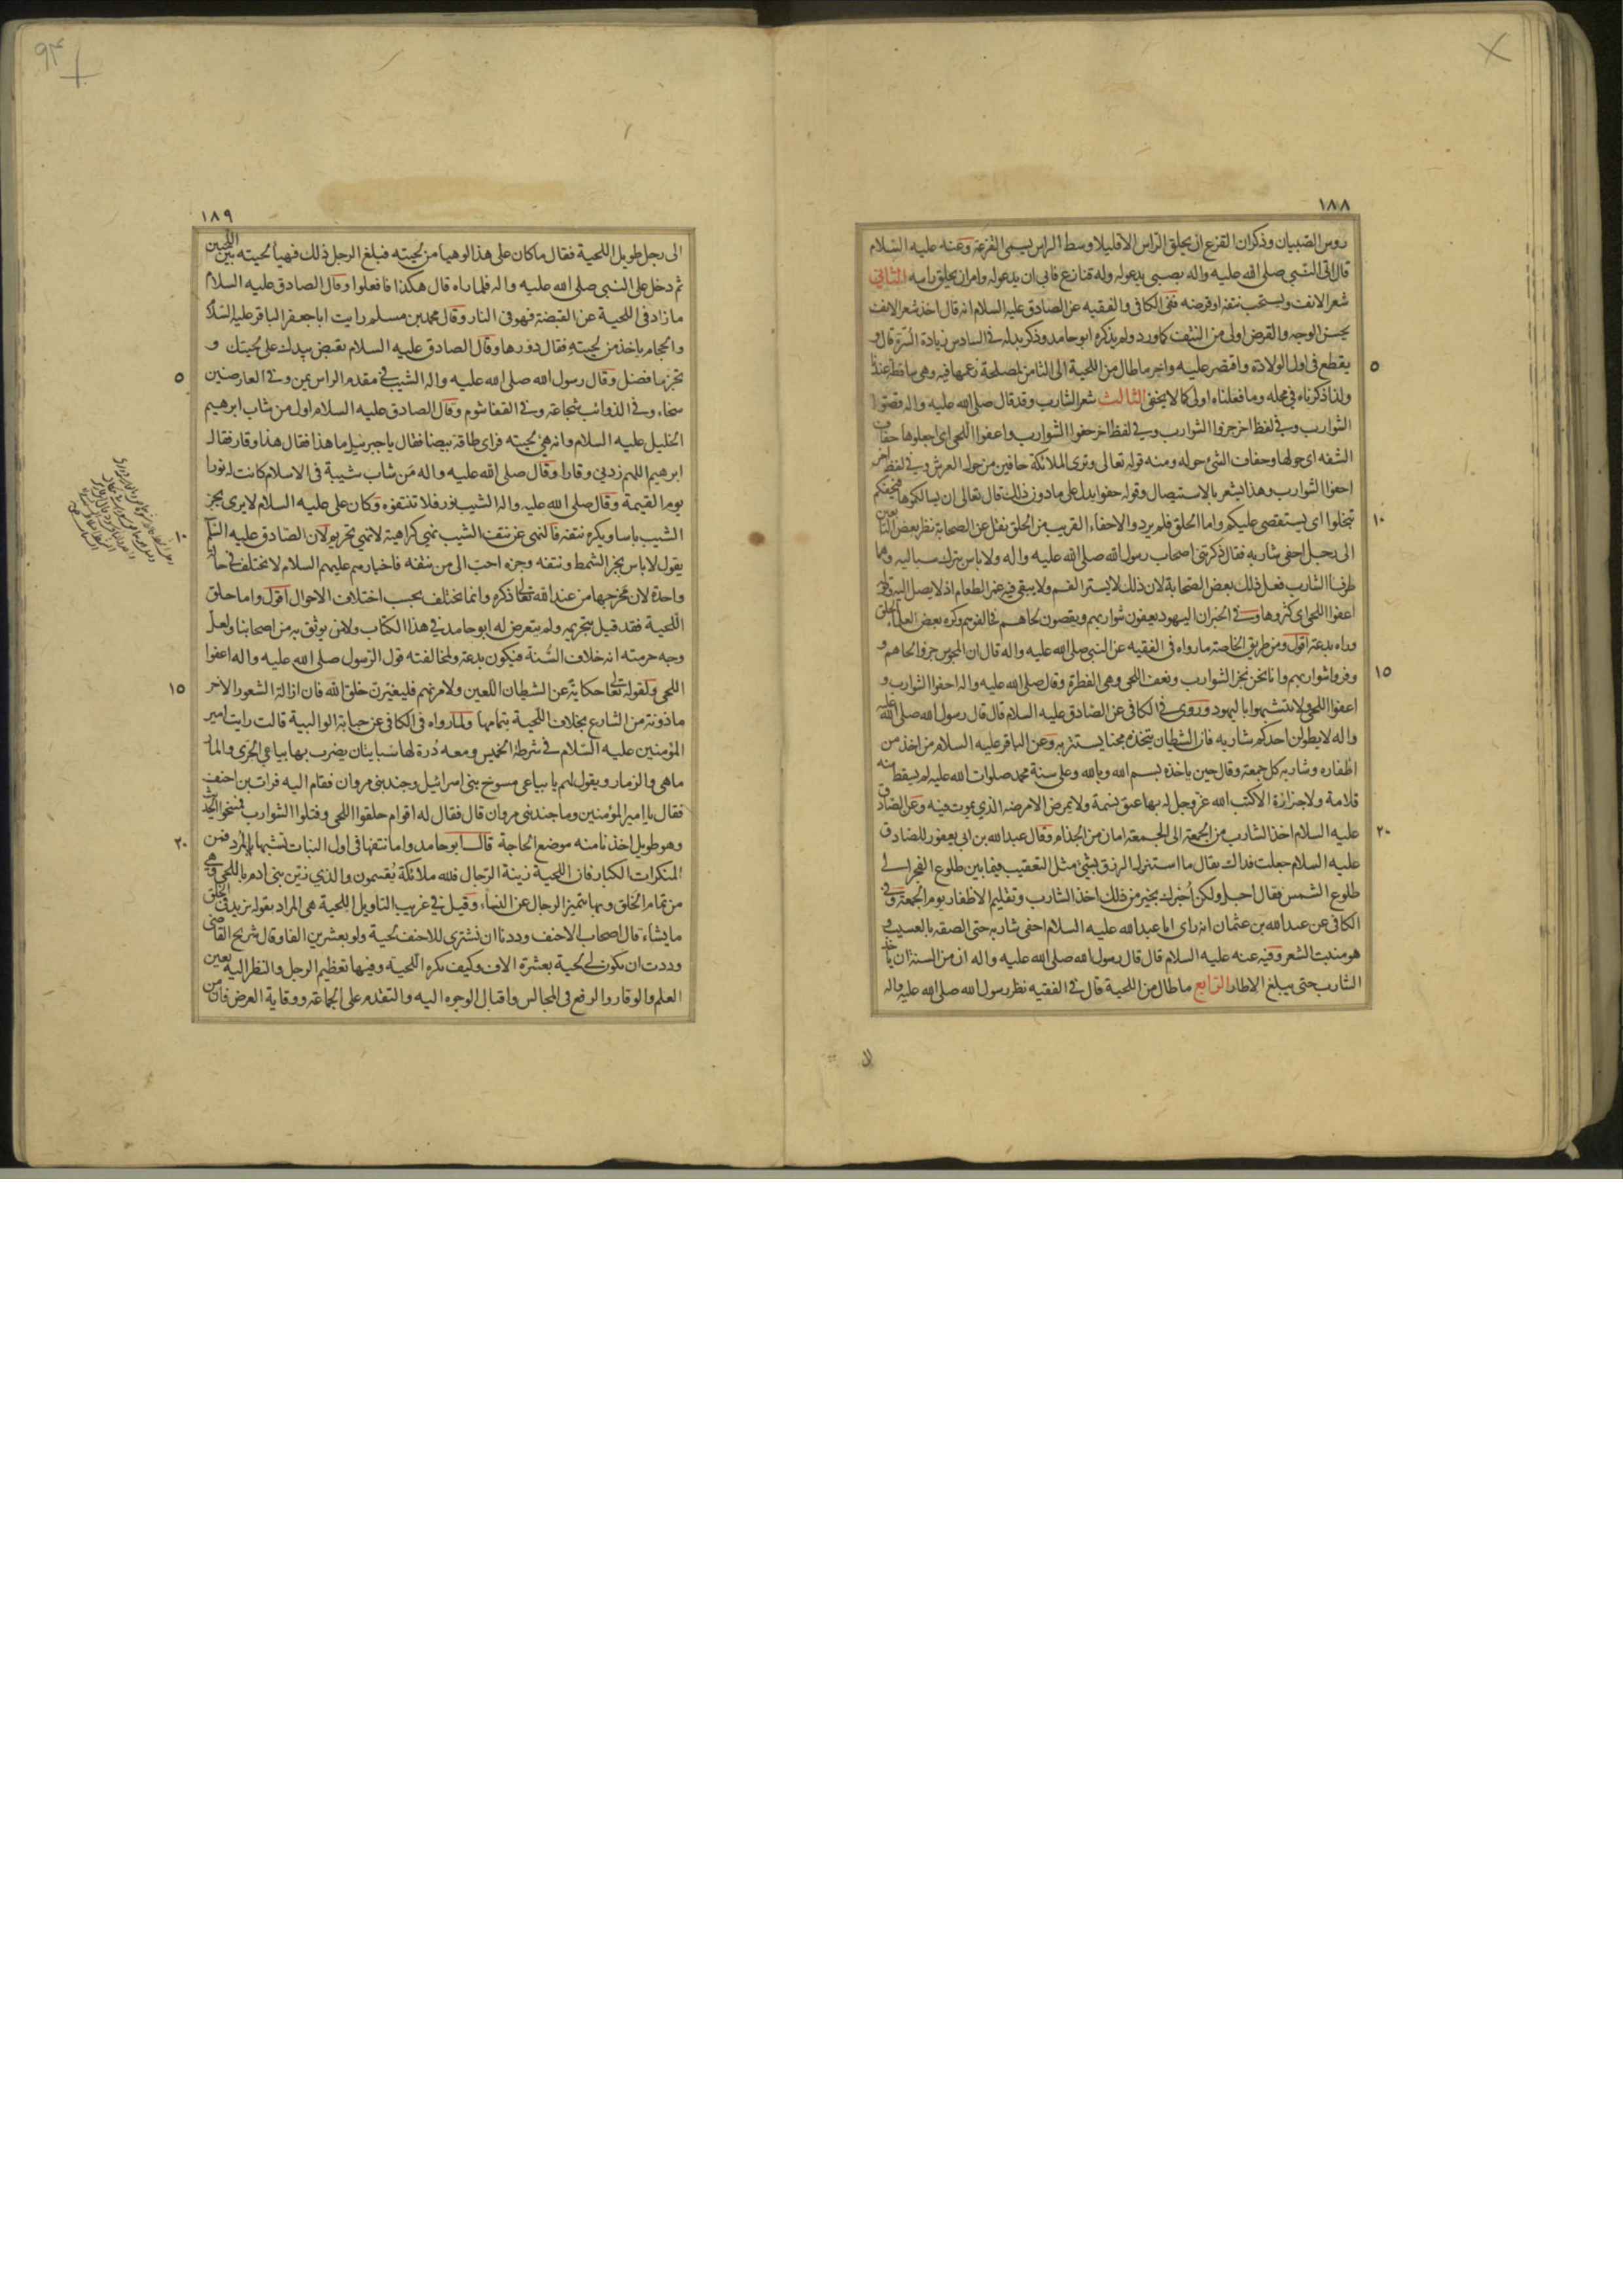 ١٨٨
روس الصبيان وذكران القزع ان يحلق الراس الا قليلا وسط الراس يسمى القزعة وعنه عليه السلام
قال اتى النبي صلى الله عليه واله بصبى يدعوله وله قنازع فابى ان يدعوله وامر ان يحلق راسه الثانى
شعر الانف ويستحب نتفه او قرضه ففى الكافى والفقيه عن الصادق عليه السلام انه قال اخذ شعر الانف
يحسن الوجه والقرض اولى من النتف كما ورد ولم يذكره ابو حامد وذكر بدله فى السادس زيادة السرة قال و
يقطع فى اول الولادة واقتصر عليه واخر ما طال من اللحية الى الثامن لمصلحة زعمها فيه وهى ساقطة عندنا
ولذا ذكرناه فى محله وما فعلناه اولى كما لا يخفى الثالث شعر الشارب وقد قال صلى الله عليه واله قصوا
الشوارب وفى لفظ اخر جزوا الشوارب وفى لفظ اخر حفوا الشوارب واعفوا اللحى اى اجعلوها حفاف
الشفه اى حولها وحفاف الشئ حوله ومنه قوله تعالى وترى الملائكة حافين من حول العرش وفى لفظ اخر
احفوا الشوارب وهذا يشعر بالاستيصال وقوله حفوا يدل على ما دون ذلك قال تعالى ان يسالكموها فيحفكم
تبخلوا اى يستقصى عليكم واما الحلق فلم يرد والاحفاء القريب من الحلق نقل عن الصحابة نظر بعض التابعين
الى رجل احفى شاربه فقال ذكرتنى اصحاب رسول الله صلى الله عليه واله ولا باس بترك سباليه وهما
طرفا الشارب فعل ذلك بعض الصحابة لان ذلك لا يستر الفم ولا يبقى فيه غمر الطعام اذ لا يصل اليه وقوله
اعفوا اللحى اى كثروها وفى الخبر ان اليهود يعفون شواربهم ويقصون لحاهم فخالفوهم وكره بعض العلماء الحلق
وراه بدعة اقول ومن طريق الخاصة ما رواه فى الفقيه عن النبى صلى الله عليه واله قال ان المجوس جزوا لحاهم و
وفروا شواربهم وانا نحن نجز الشوارب ونعف اللحى وهى الفطرة وقال صلى الله عليه واله احفوا الشوارب و
اعفوا اللحى ولا تتشبهوا باليهود وروى فى الكافى عن الصادق عليه السلام قال قال رسول الله صلى الله عليه
واله لا يطولن احدكم شاربه فان الشيطان يتخذه مجنا يستتر به وعن الباقر عليه السلام من اخذ من
اظفاره وشاربه كل جمعة وقال حين ياخذه بسم الله وبالله وعلى سنة محمد صلوات الله عليه لم يسقط منه
قلامة ولا جزازة الا كتب الله عز وجل له بها عتق نسمة ولا يمرض الا مرضه الذى يموت فيه وعن الصادق
عليه السلام اخذ الشارب من الجمعة الى الجمعة امان من الجذام وقال عبد الله بن ابى يعفور للصادق
عليه السلام جعلت فداك يقال ما استنزل الرزق بشئ مثل التعقيب فيما بين طلوع الفجر الى
طلوع الشمس فقال اجل ولكن اخبرك بخير من ذلك اخذ الشارب وتقليم الاظفار يوم الجمعة وفى
الكافى عن عبد الله بن عثمان انه راى ابا عبد الله عليه السلام احفى شاربه حتى الصقه بالعسيب و
هو منبت الشعر وفيه عنه عليه السلام قال قال رسول الله صلى الله عليه واله ان من السنة ان ياخذ
الشارب حتى يبلغ الاطار الرابع ما طال من اللحية قال فى الفقيه نظر رسول الله صلى الله عليه واله
٥
١٠
١٥
٢٠
١٨٩
الى رجل طويل اللحية فقال ما كان على هذا لو هيا من لحيته فبلغ الرجل ذلك فهيا لحيته بين اللحيتين
ثم دخل على النبى صلى الله عليه واله فلما راه قال هكذا فافعلوا وقال الصادق عليه السلام
ما زاد فى اللحية عن القبضة فهو فى النار وقال محمد بن مسلم رايت ابا جعفر الباقر عليه السلام
والحجام ياخذ من لحيته فقال دورها وقال الصادق عليه السلام تقبض بيدك على لحيتك و
تجز ما فضل وقال رسول الله صلى الله عليه واله الشيب فى مقدم الراس يمن وفى العارضين
سخاء وفى الذوائب شجاعة وفى القفا شوم وقال الصادق عليه السلام اول من شاب ابرهيم
الخليل عليه السلام وانه هيئ لحيته فراى طاقة بيضا فقال يا جبرئيل ما هذا فقال هذا وقار فقال
ابرهيم اللهم زدنى وقارا وقال صلى الله عليه واله من شاب شيبة فى الاسلام كانت له نورا
يوم القيمة وقال صلى الله عليه واله الشيب نور فلا تنتفوه وكان على عليه السلام لا يرى بجز
الشيب باسا ويكره نتفه فالنهى عن نتف الشيب نهى كراهية لا نهى تحريم لان الصادق عليه السلام
يقول لا باس بجز الشمط ونتفه وجزه احب الى من نتفه فاخبارهم عليهم السلام لا تختلف فى حالة
واحدة لان مخرجها من عند الله تعالى ذكره وانما تختلف بحسب اختلاف الاحوال اقول واما حلق
اللحية فقد قيل بتحريمه ولم يتعرض له ابو حامد فى هذا الكتاب ولا من يوثق به من اصحابنا ولعل
وجه حرمته انه خلاف السنة فيكون بدعة ولمخالفته قول الرسول صلى الله عليه واله اعفوا
اللحى ولقوله تعالى حكاية عن الشيطان اللعين ولامرنهم فليغيرن خلق الله فان ازالة الشعور الاخر
ماذونة من الشارع بخلاف اللحية بتمامها ولما رواه فى الكافى عن حبابة الوالبية قالت رايت امير
المؤمنين عليه السلام فى شرطة الخميس ومعه درة لها سبابتان يضرب بها بياعى الجرى والمار
ماهى والزمار ويقول لهم يا بياعى مسوخ بنى اسرائيل وجند بنى مروان فقام اليه فرات بن احنف
فقال يا امير المؤمنين وما جند بنى مروان قال فقال له اقوام حلقوا اللحى وفتلوا الشوارب فمسخوا الحديث
وهو طويل اخذنا منه موضع الحاجة قال ابو حامد واما نتفها فى اول النبات تشبها بالمرد فمن
المنكرات الكبار فان اللحية زينة الرجال فلله ملائكة يقسمون والذى زين بنى ادم باللحى وهى
من تمام الخلق وبها تتميز الرجال عن النساء وقيل فى غريب التاويل اللحية هى المراد بقوله يزيد فى الخلق
ما يشاء قال اصحاب الاحنف وددنا ان نشترى للاحنف لحية ولو بعشرين الفا وقال شريح القاضى
وددت ان تكون لى لحية بعشرة الاف وكيف تكره اللحية وفيها تعظيم الرجل والنظر اليه بعين
العلم والوقار والرفع فى المجالس واقبال الوجوه اليه والتقدم على الجماعة ووقاية العرض فان من
٥
١٠
١٥
٢٠